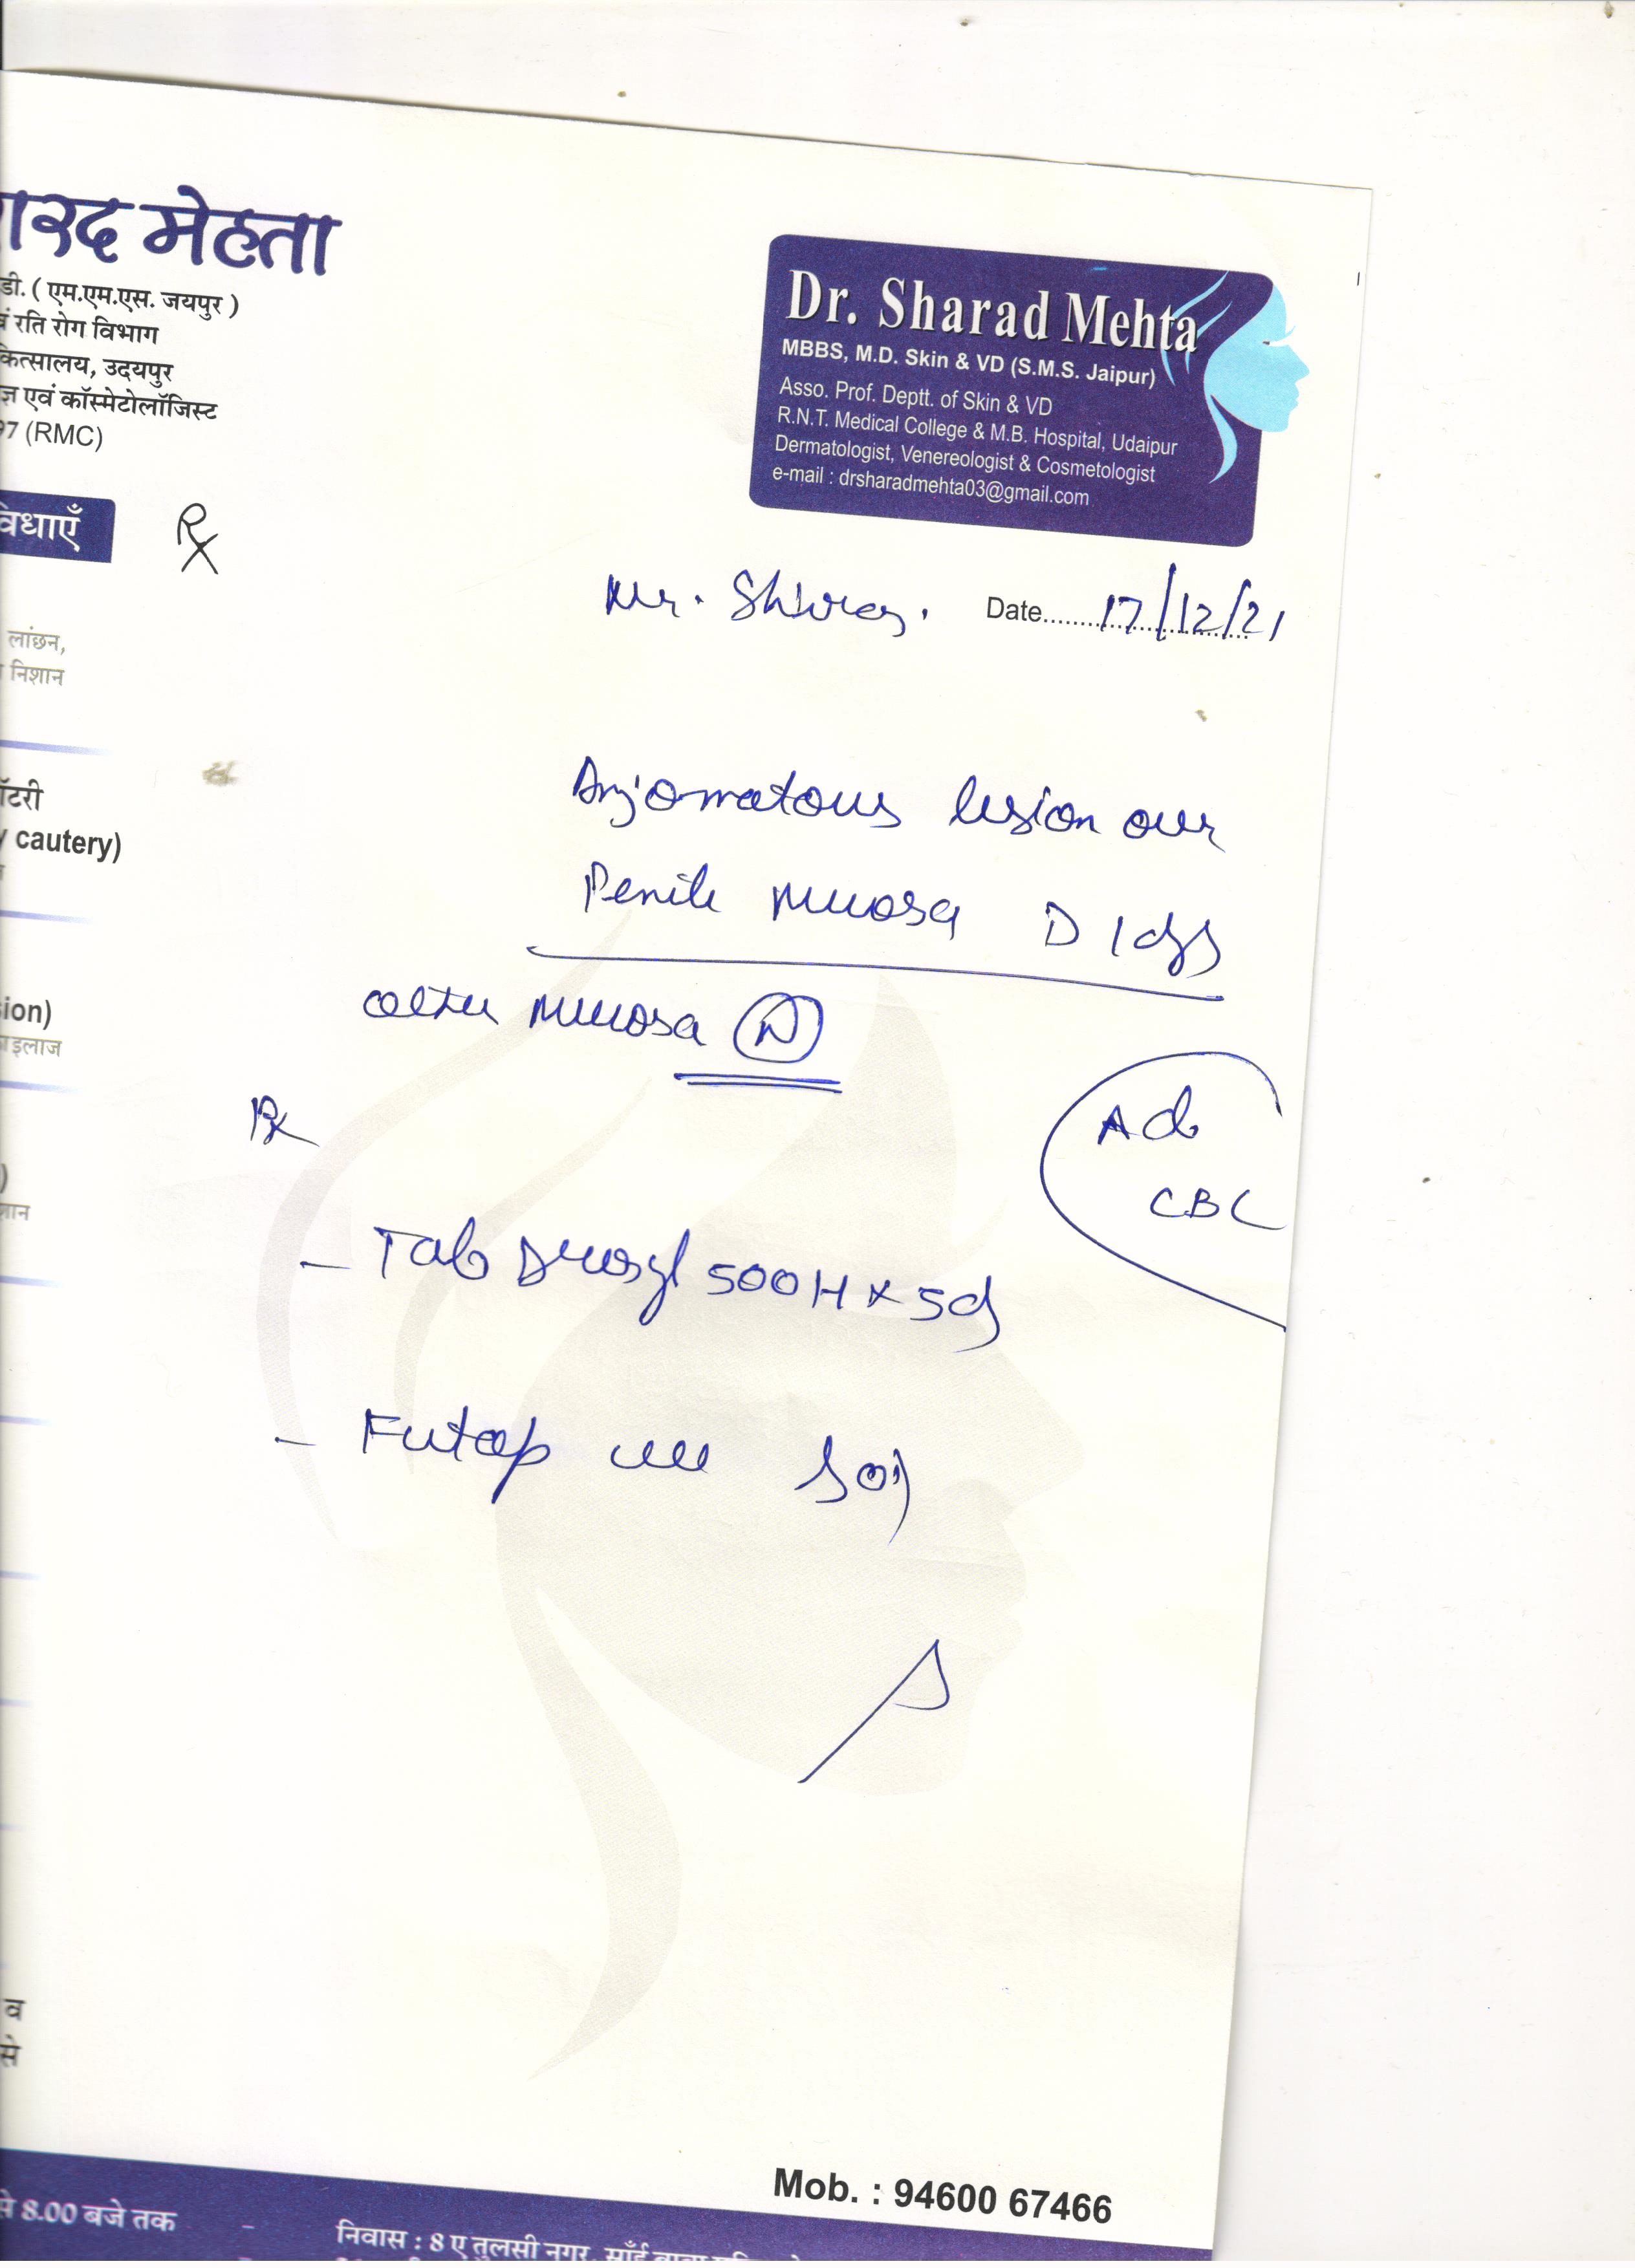 शरद मेहता
डी. ( एम.एम.एस. जयपुर )
वं रति रोग विभाग
कित्सालय, उदयपुर
ज्ञ एवं कॉस्मेटोलॉजिस्ट
97 (RMC)
Dr. Sharad Mehta
MBBS, M.D. Skin & VD (S.M.S. Jaipur)
Asso. Prof. Deptt. of Skin & VD
R.N.T. Medical College & M.B. Hospital, Udaipur
Dermatologist, Venereologist & Cosmetologist
e-mail : drsharadmehta03@gmail.com
विधाएँ
Rx
Mr. Date 17/12/21
लांछन,
निशान
Angiomatous lesion over
Penile Mucosa
ॉटरी
cautery)
Mucosa N
sion)
इलाज
Rx
Adv
CBC
- Tab 500 H x 5d
- Futop
व
से
Mob. : 94600 67466
से 8.00 बजे तक -
निवास : 8 ए तुलसी नगर,